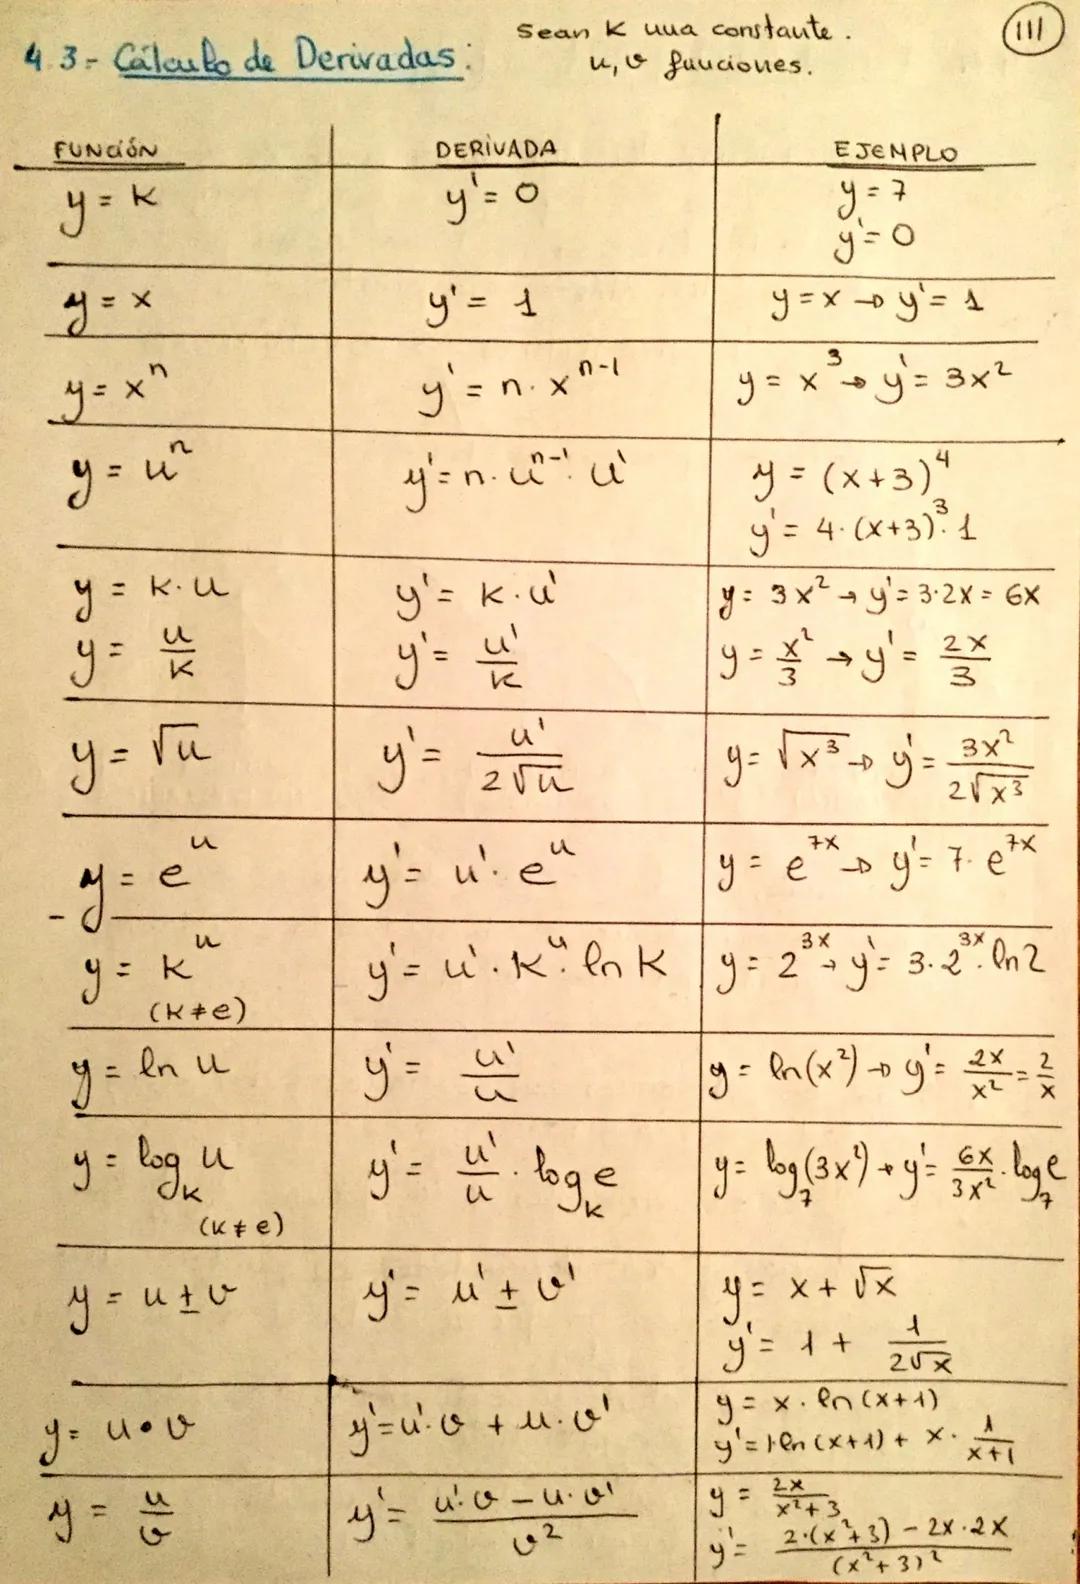 4.3- Cálculo de Derivadas:
Sean K una constante.
u, v funciones.
111
FUNCIÓN DERIVADA EJEMPLO
y = K y' = 0 y = 7
y' = 0
y = x y' = 1 y = x → y' = 1
y = xⁿ y' = n · xⁿ⁻¹ y = x³ → y' = 3x²
y = uⁿ y' = n · uⁿ⁻¹ · u' y = (x+3)⁴
y' = 4 · (x+3)³ · 1
y = K · u y' = K · u' y = 3x² → y' = 3·2x = 6x
y = u/K y' = u'/K y = x²/3 → y' = 2x/3
y = √u y' = u'/2√u y = √x³ → y' = 3x²/2√x³
y = e^u y' = u' · e^u y = e^7x → y' = 7 · e^7x
y = K^u y' = u' · K^u · ln K y = 2^3x → y' = 3 · 2^3x · ln 2
(K ≠ e)
y = ln u y' = u'/u y = ln(x²) → y' = 2x/x² = 2/x
y = log_K u y' = u'/u · log_K e y = log_7(3x²) → y' = 6x/3x² · log_7 e
(K ≠ e)
y = u ± v y' = u' ± v' y = x + √x
y' = 1 + 1/2√x
y = u • v y' = u' · v + u · v' y = x · ln(x+1)
y' = 1·ln(x+1) + x · 1/x+1
y = u/v y' = u' · v − u · v'/v² y = 2x/x²+3
y' = 2·(x²+3) − 2x·2x/(x²+3)²